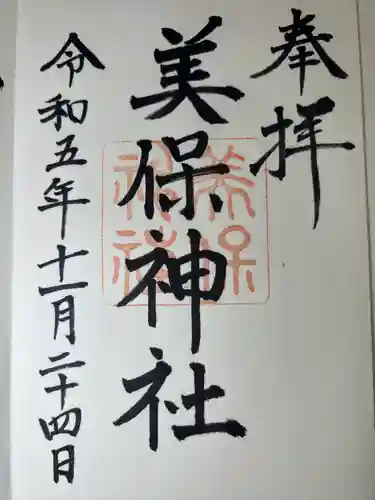 奉拝
美保神社
美保神社
令和五年十一月二十四日